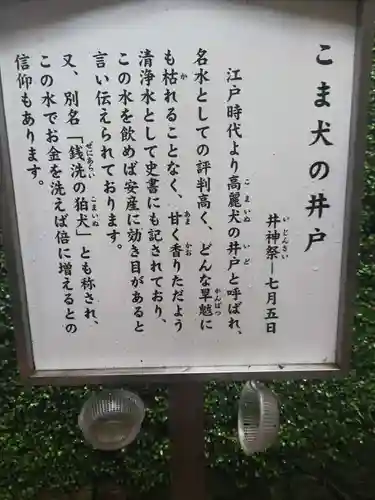 こま犬の井戸
井神祭ー七月五日
いじんさい
江戸時代より高麗犬の井戸と呼ばれ、
こまいぬ
いど
名水としての評判高く、どんな旱魃に
かんばつ
も枯れることなく、甘く香りただよう
か
あま
かお
清浄水として史書にも記されており、
この水を飲めば安産に効き目があると
言い伝えられております。
又、別名「銭洗の狛犬」とも称され、
ぜにあらい
こまいぬ
この水でお金を洗えば倍に増えるとの
信仰もあります。